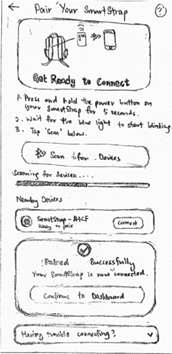 ← Pair Your SmartStrap ?
Get Ready to Connect
1. Press and hold the power button on
your SmartStrap for 5 seconds.
2. Wait for the LED light to start blinking.
3. Tap 'Scan' below.
Scan for Devices
Scanning for devices....
Nearby Devices
SmartStrap-A1CF
Ready to pair
Connect
Paired Successfully
Your SmartStrap is now connected.
Continue to Dashboard
Having trouble connecting?